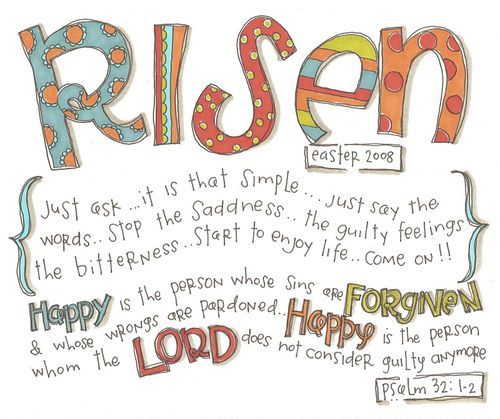 RISen
easter 2008
Just ask...it is that simple... Just say the
words.. Stop the Saddness.. the guilty feelings
the bitterness...Start to enjoy life.. come on!!
Happy is the person whose sins are FORGIVEN
& whose wrongs are pardoned.. Happy is the person
whom the LORD does not consider guilty anymore
psalm 32: 1-2